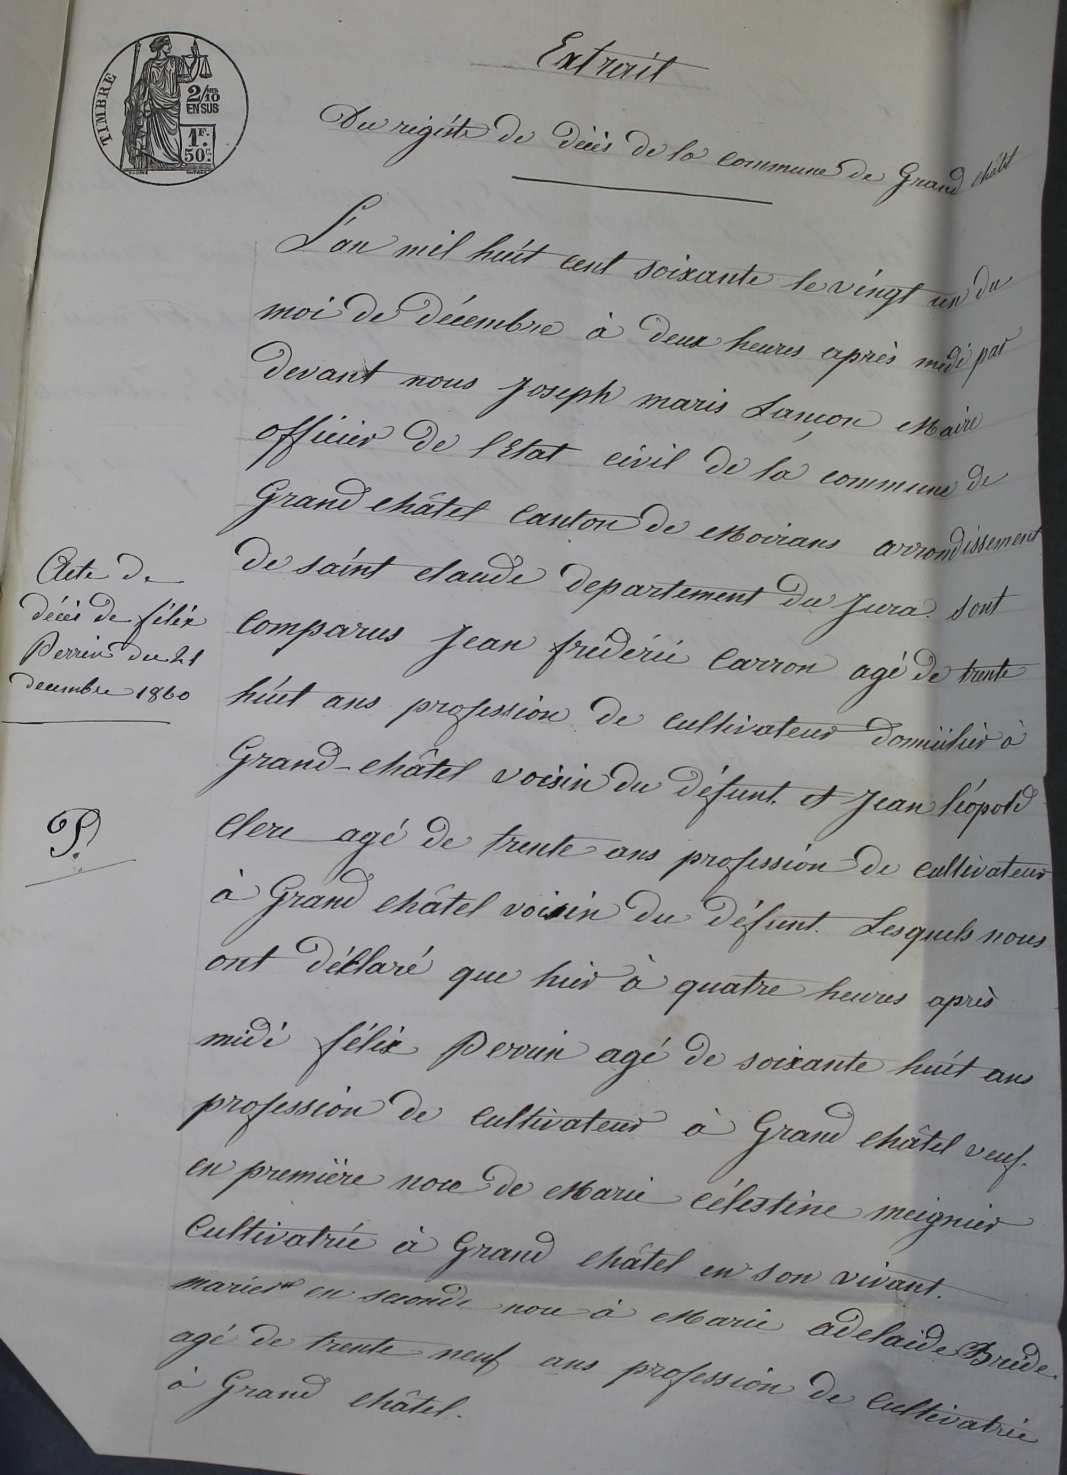 TIMBRE
2/10
EN SUS
1F.
50c.
Extrait
Du régiste de décès de la commune de Grand châtel
L'an mil huit cent soixante le vingt un du
moi de décembre à deux heures après midi par
devant nous Joseph maris Lançon Maire
officier de l'Etat civil de la commune de
Grand châtel Canton de Moirans arrondissement
de saint claude departement du Jura. sont
Comparus Jean frédéric Carron agé de trente
huit ans profession de cultivateur domicilier à
Grand-châtel voisin du défunt. et Jean léopold
Clerc agé de trente ans profession de cultivateur
à Grand châtel voisin du défunt. Lesquels nous
ont déclaré que hier à quatre heures après
midi félix Perrin agé de soixante huit ans
profession de cultivateur à Grand châtel veuf.
en première noce de Marie Célestine meignier
Cultivatrice à Grand châtel en son vivant.
marier en seconde noce à Marie adelaide Bride.
agé de trente neuf ans profession de Cultivatrice
à Grand châtel.
Acte de
décès de félix
Perrin du 21
decembre 1860
P.